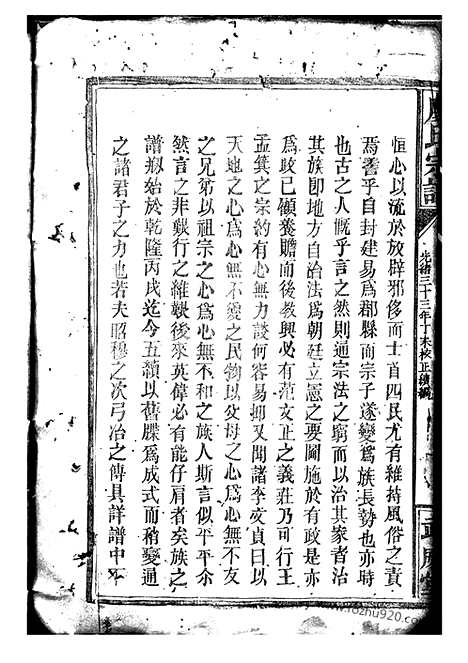 氏宗譜
光緒三十三年丁未校正續編
恒心以流於放辟邪侈而士首四民尤有維持風俗之責
焉耆乎自封建易爲郡縣而宗子遂變爲族長勢也亦時
也古之人慨乎言之然則通宗法之窮而以治其家者治
其族即地方自治法爲朝廷立憲之要圖施於有政是亦
爲政已顧養贍而後教興必有范文正之義莊乃可行王
孟箕之宗約有心世教談何容易抑又聞諸李文貞曰以
天地之心爲心無不愛之民物以父母之心爲心無不
之兄弟以祖宗之心爲心無不和之族人斯言似平平余
然言之非艱行之維艱後來英偉必有能仔肩者矣族之
譜剏始於乾隆丙戌迄今五續以舊牒爲成式而稍變通
之諸君子之力也若夫昭穆之次弓冶之傳具詳譜中不
www.fozhu920.com